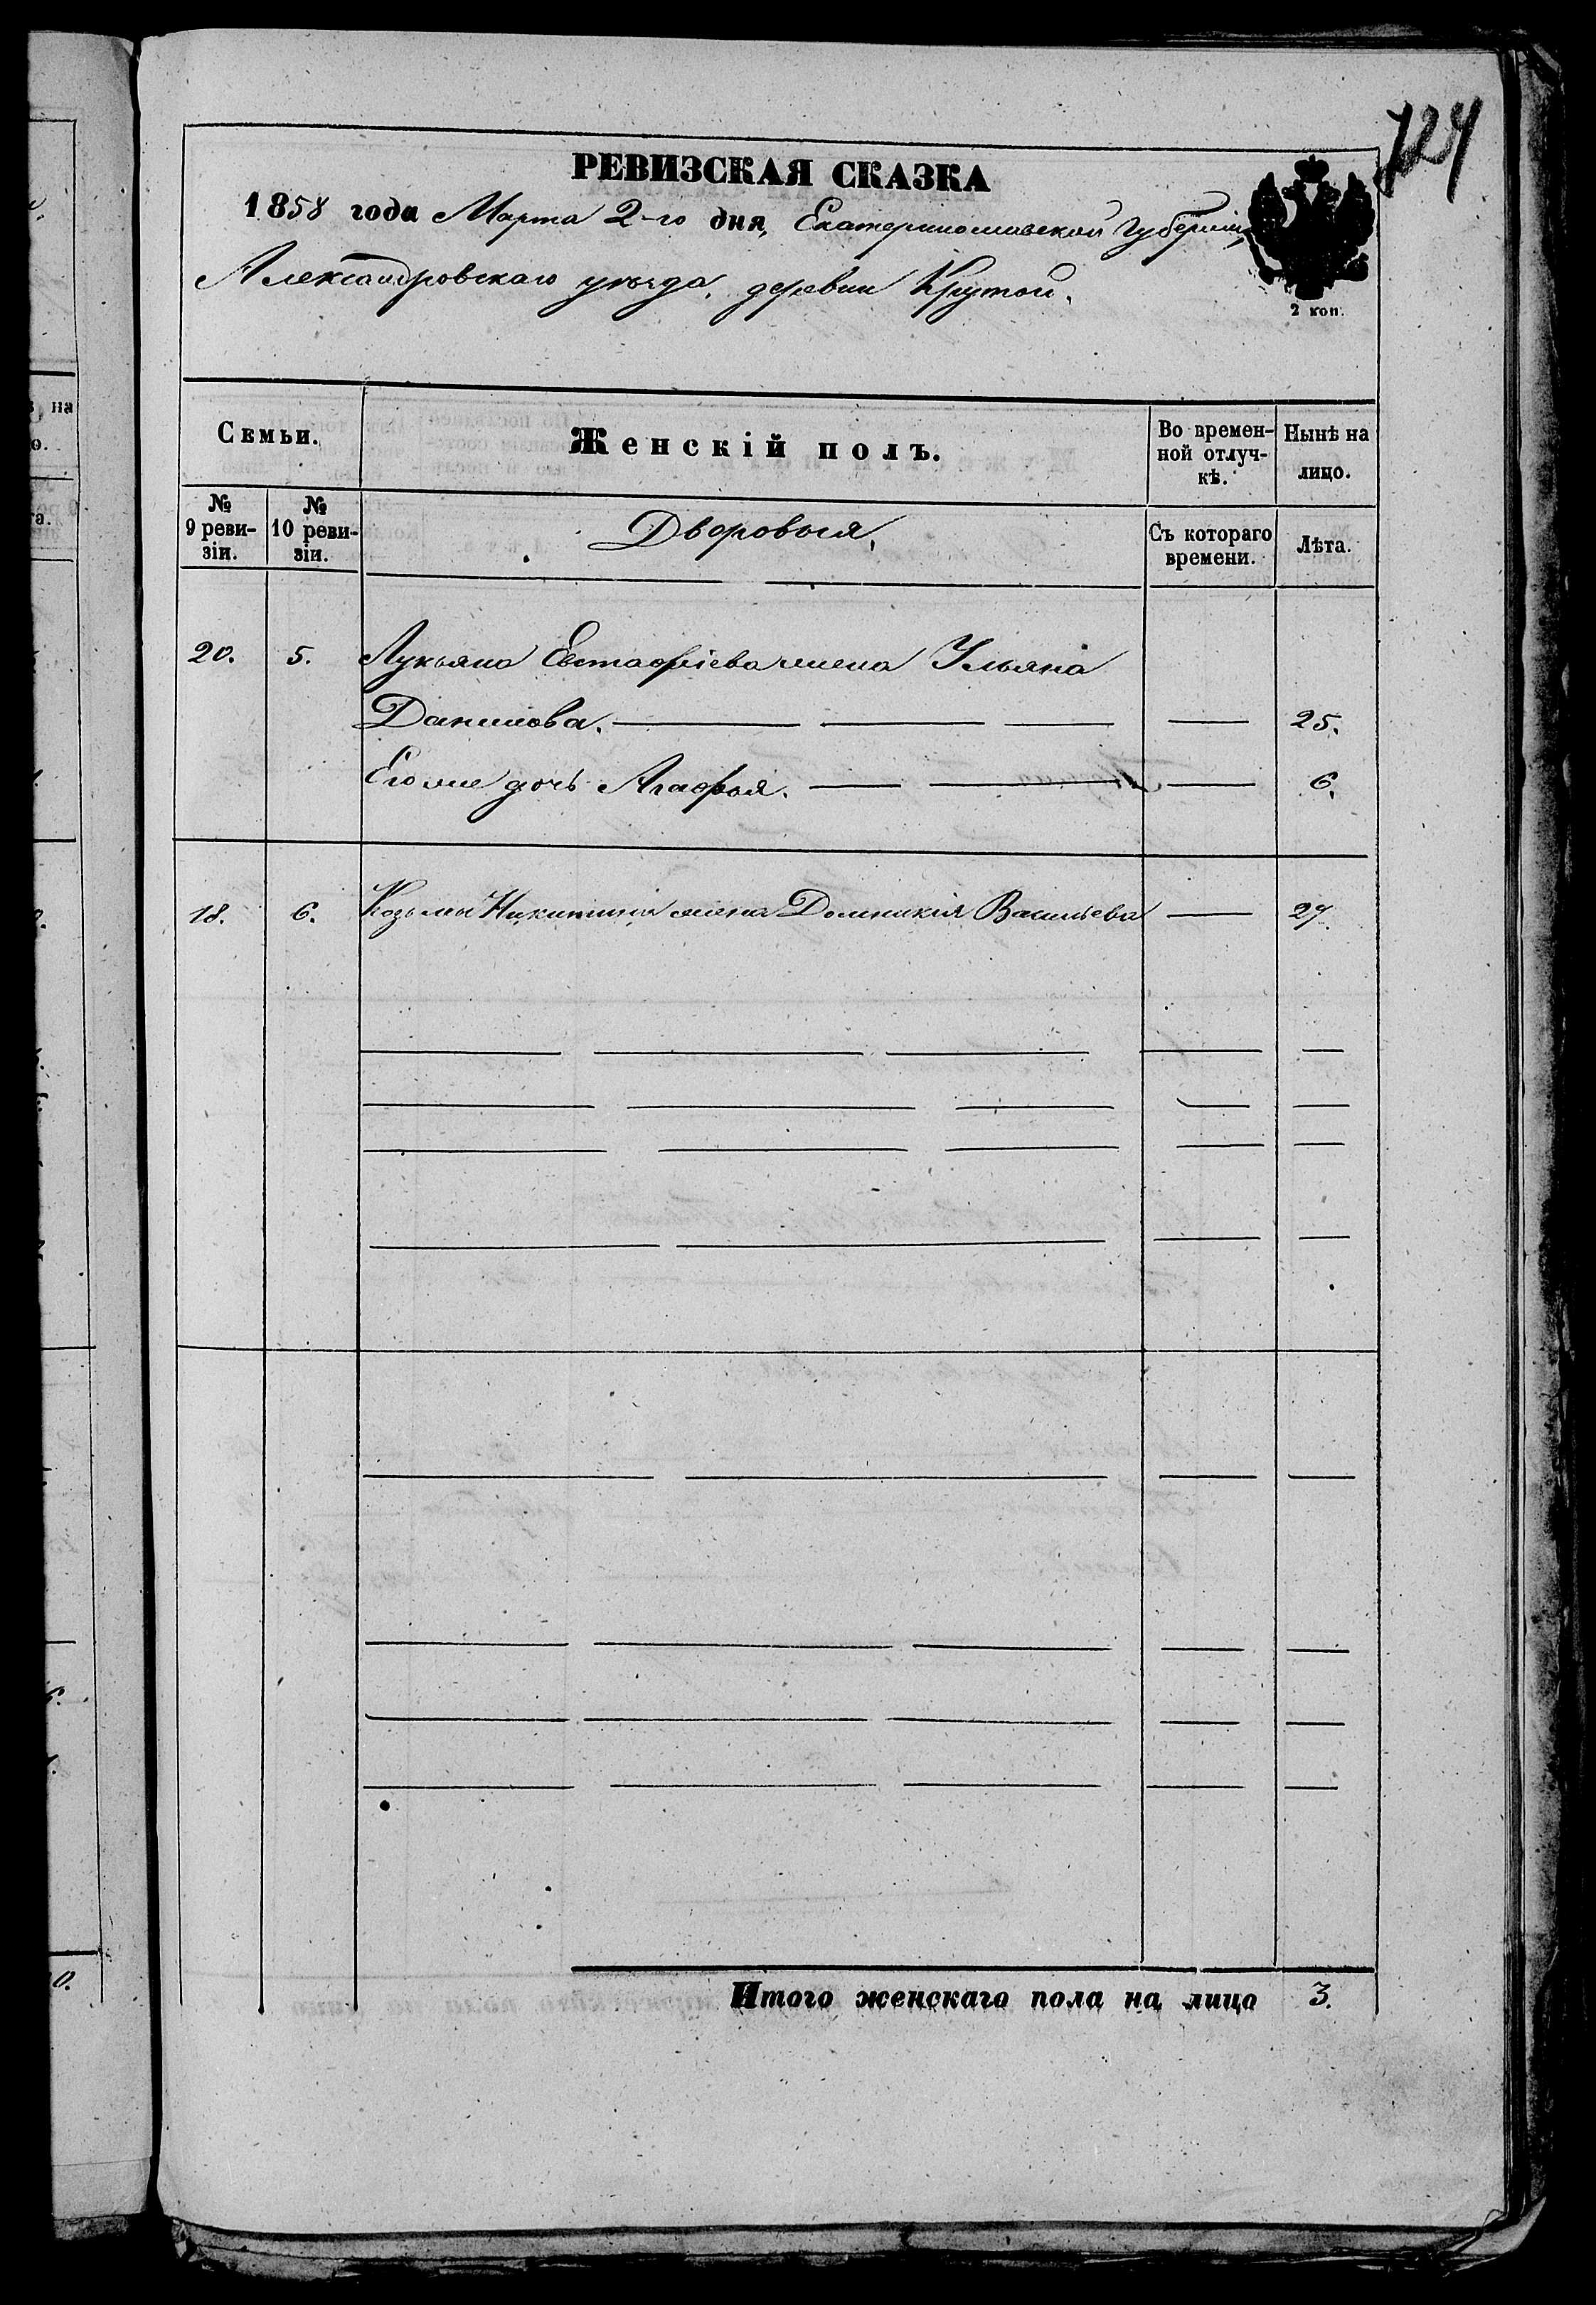 724
РЕВИЗСКАЯ СКАЗКА
1858 года Марта 2-го дня, Екатеринославской Губерніи,
Александровскаго уѣзда, деревни Крутой.
2 коп.
Семьи.
Женскій полъ.
Во времен-
ной отлуч-
кѣ.
Нынѣ на
лицо.
№
9 реви-
зіи.
№
10 реви-
зіи.
Дворовыя,
Съ котораго
времени.
Лѣта.
20. 5. Лукьяна Евстафіева жена Ульяна
Данилова. 25.
Его же дочь Агафья. 6.
18. 6. Козьмы Никитина жена Домникія Васильева 27.
Итого женскаго пола на лицо 3.